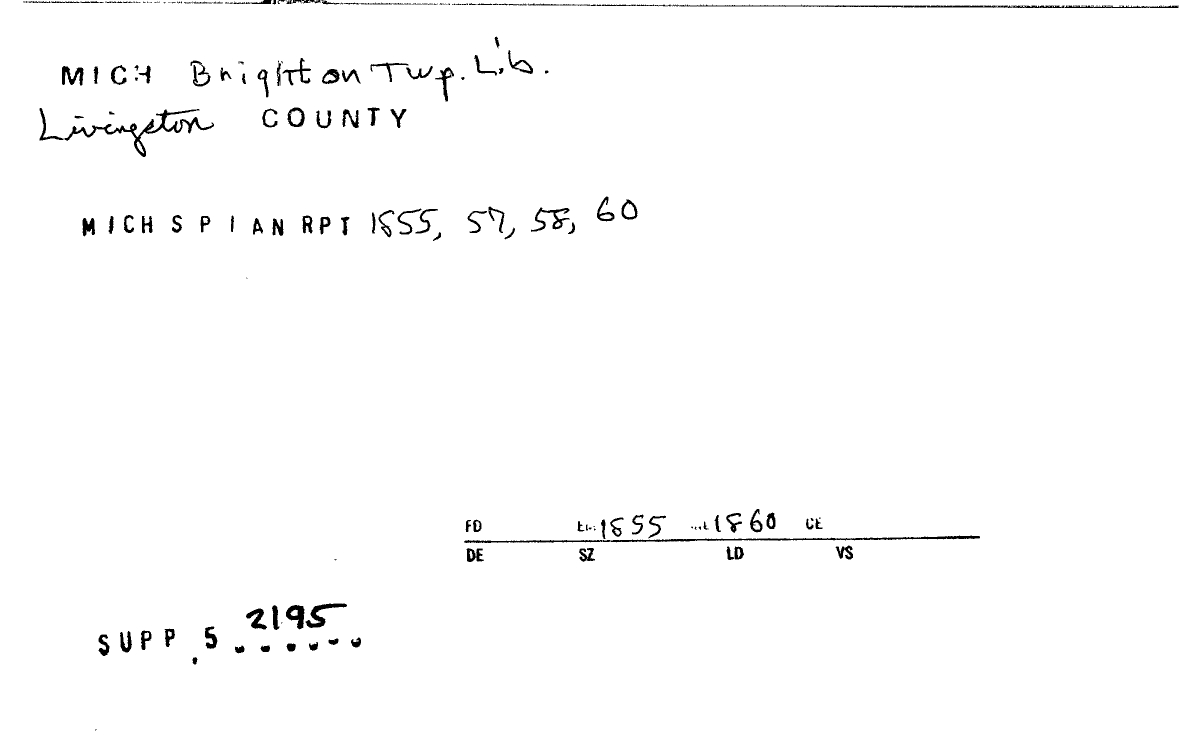 MICH Brighton Twp. Lib.
Livingston COUNTY
MICH S P I AN RPT 1855, 57, 58, 60
FD 1855 1860 CE
DE SZ LD VS
2195
SUPP. 5 ......